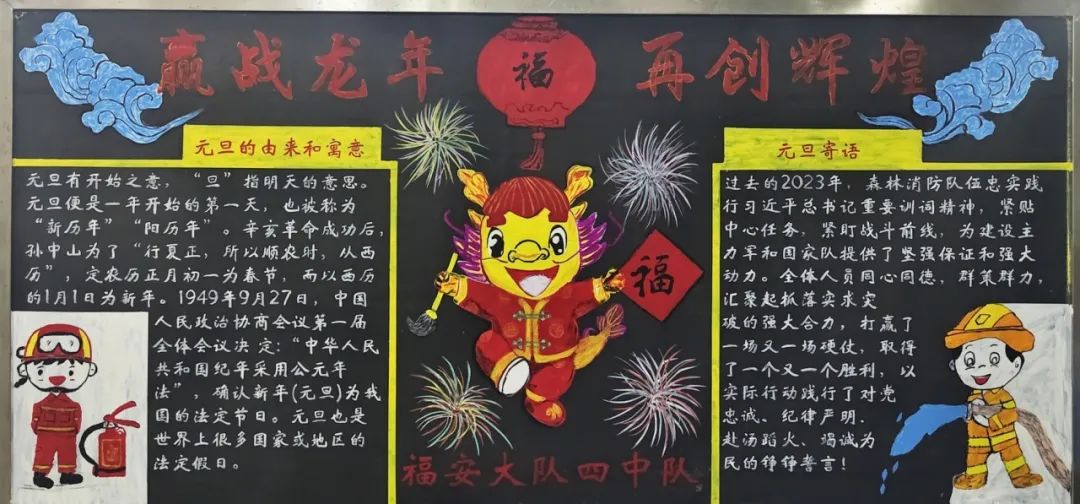 赢战龙年
再创辉煌
福
元旦的由来和寓意
元旦有开始之意，“旦”指明天的意思。
元旦便是一年开始的第一天，也被称为
“新历年”“阳历年”。辛亥革命成功后，
孙中山为了“行夏正，所以顺农时，从西
历”，定农历正月初一为春节，而以西历
的1月1日为新年。1949年9月27日，中国
人民政治协商会议第一届
全体会议决定：“中华人民
共和国纪年采用公元年
法”，确认新年(元旦)为我
国的法定节日。元旦也是
世界上很多国家或地区的
法定假日。
福
元旦寄语
过去的2023年，森林消防队伍忠实践
行习近平总书记重要训词精神，紧贴
中心任务，紧盯战斗前线，为建设主
力军和国家队提供了坚强保证和强大
动力。全体人员同心同德，群策群力，
汇聚起抓落实求突
破的强大合力，打赢了
一场又一场硬仗，取得
了一个又一个胜利，以
实际行动践行了对党
忠诚、纪律严明、
赴汤蹈火、竭诚为
民的铮铮誓言！
福安大队四中队